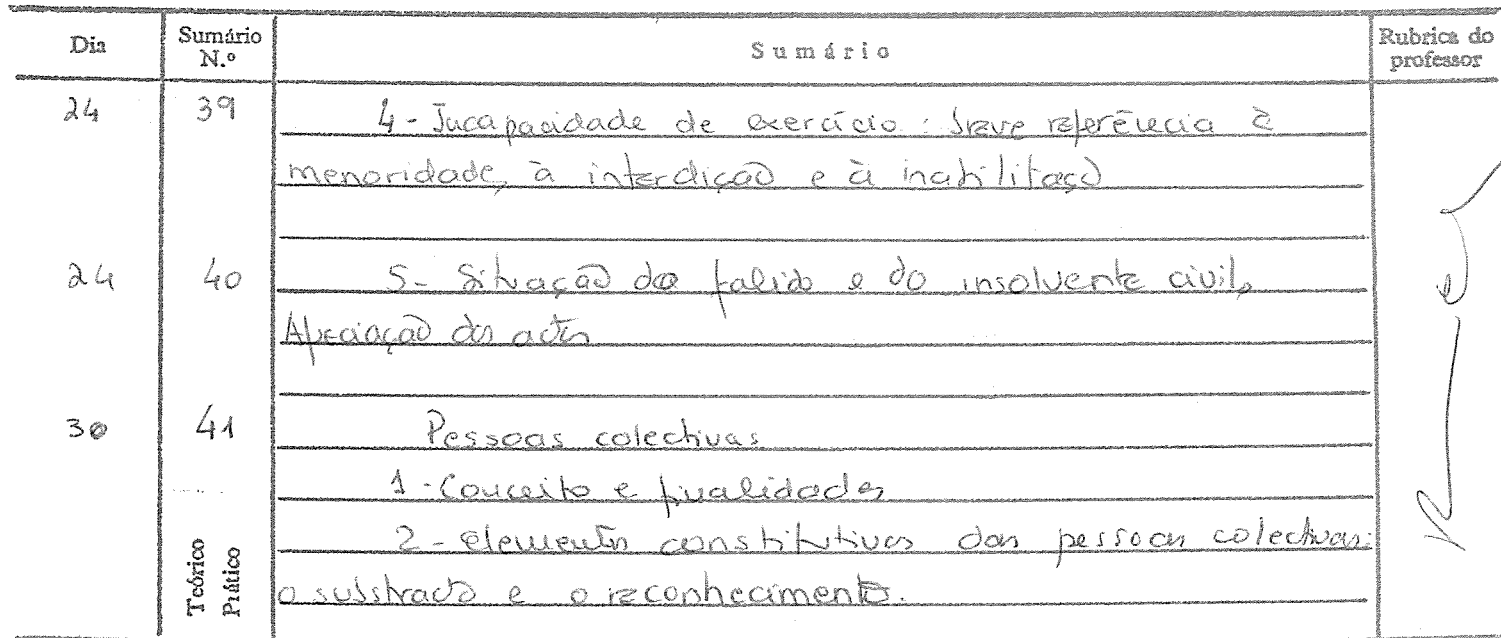 Dia Sumário N.º Sumário Rubrica do professor
24 39 4 - Incapacidade de exercício : breve referência à
menoridade, à interdição e à inabilitação
24 40 5 - Situação do falido e do insolvente civil,
Apreciação dos actos
30 41 Pessoas colectivas
1 - Conceito e finalidades
2 - elementos constitutivos das pessoas colectivas:
o substracto e o reconhecimento.
Teórico
Prático